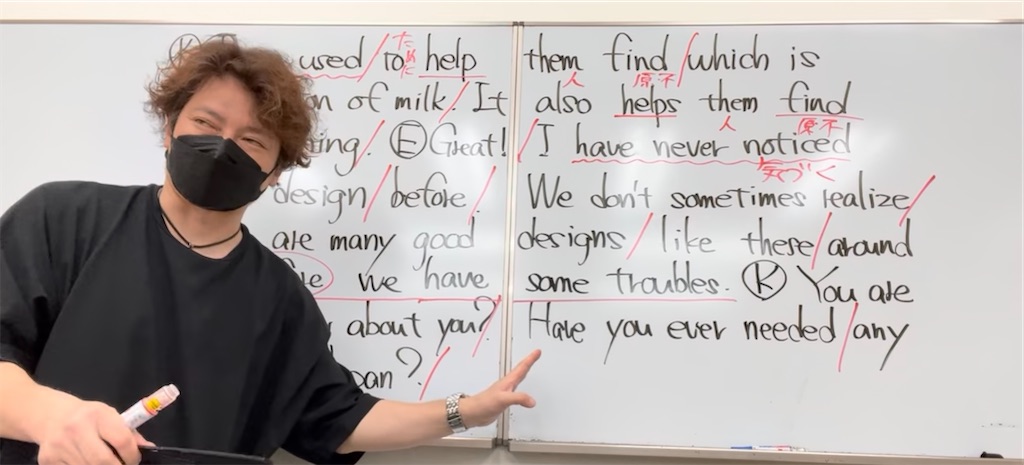 used / to ために help them 人 find 原・不 / which is
on of milk. / It also helps them 人 find 原・不
ing. / Ⓔ Great! / I have never noticed 気づく
design / before. / We don't sometimes realize /
are many good designs / like these / around
we have some troubles. Ⓚ You are
about you? / Have you ever needed / any
pan? /